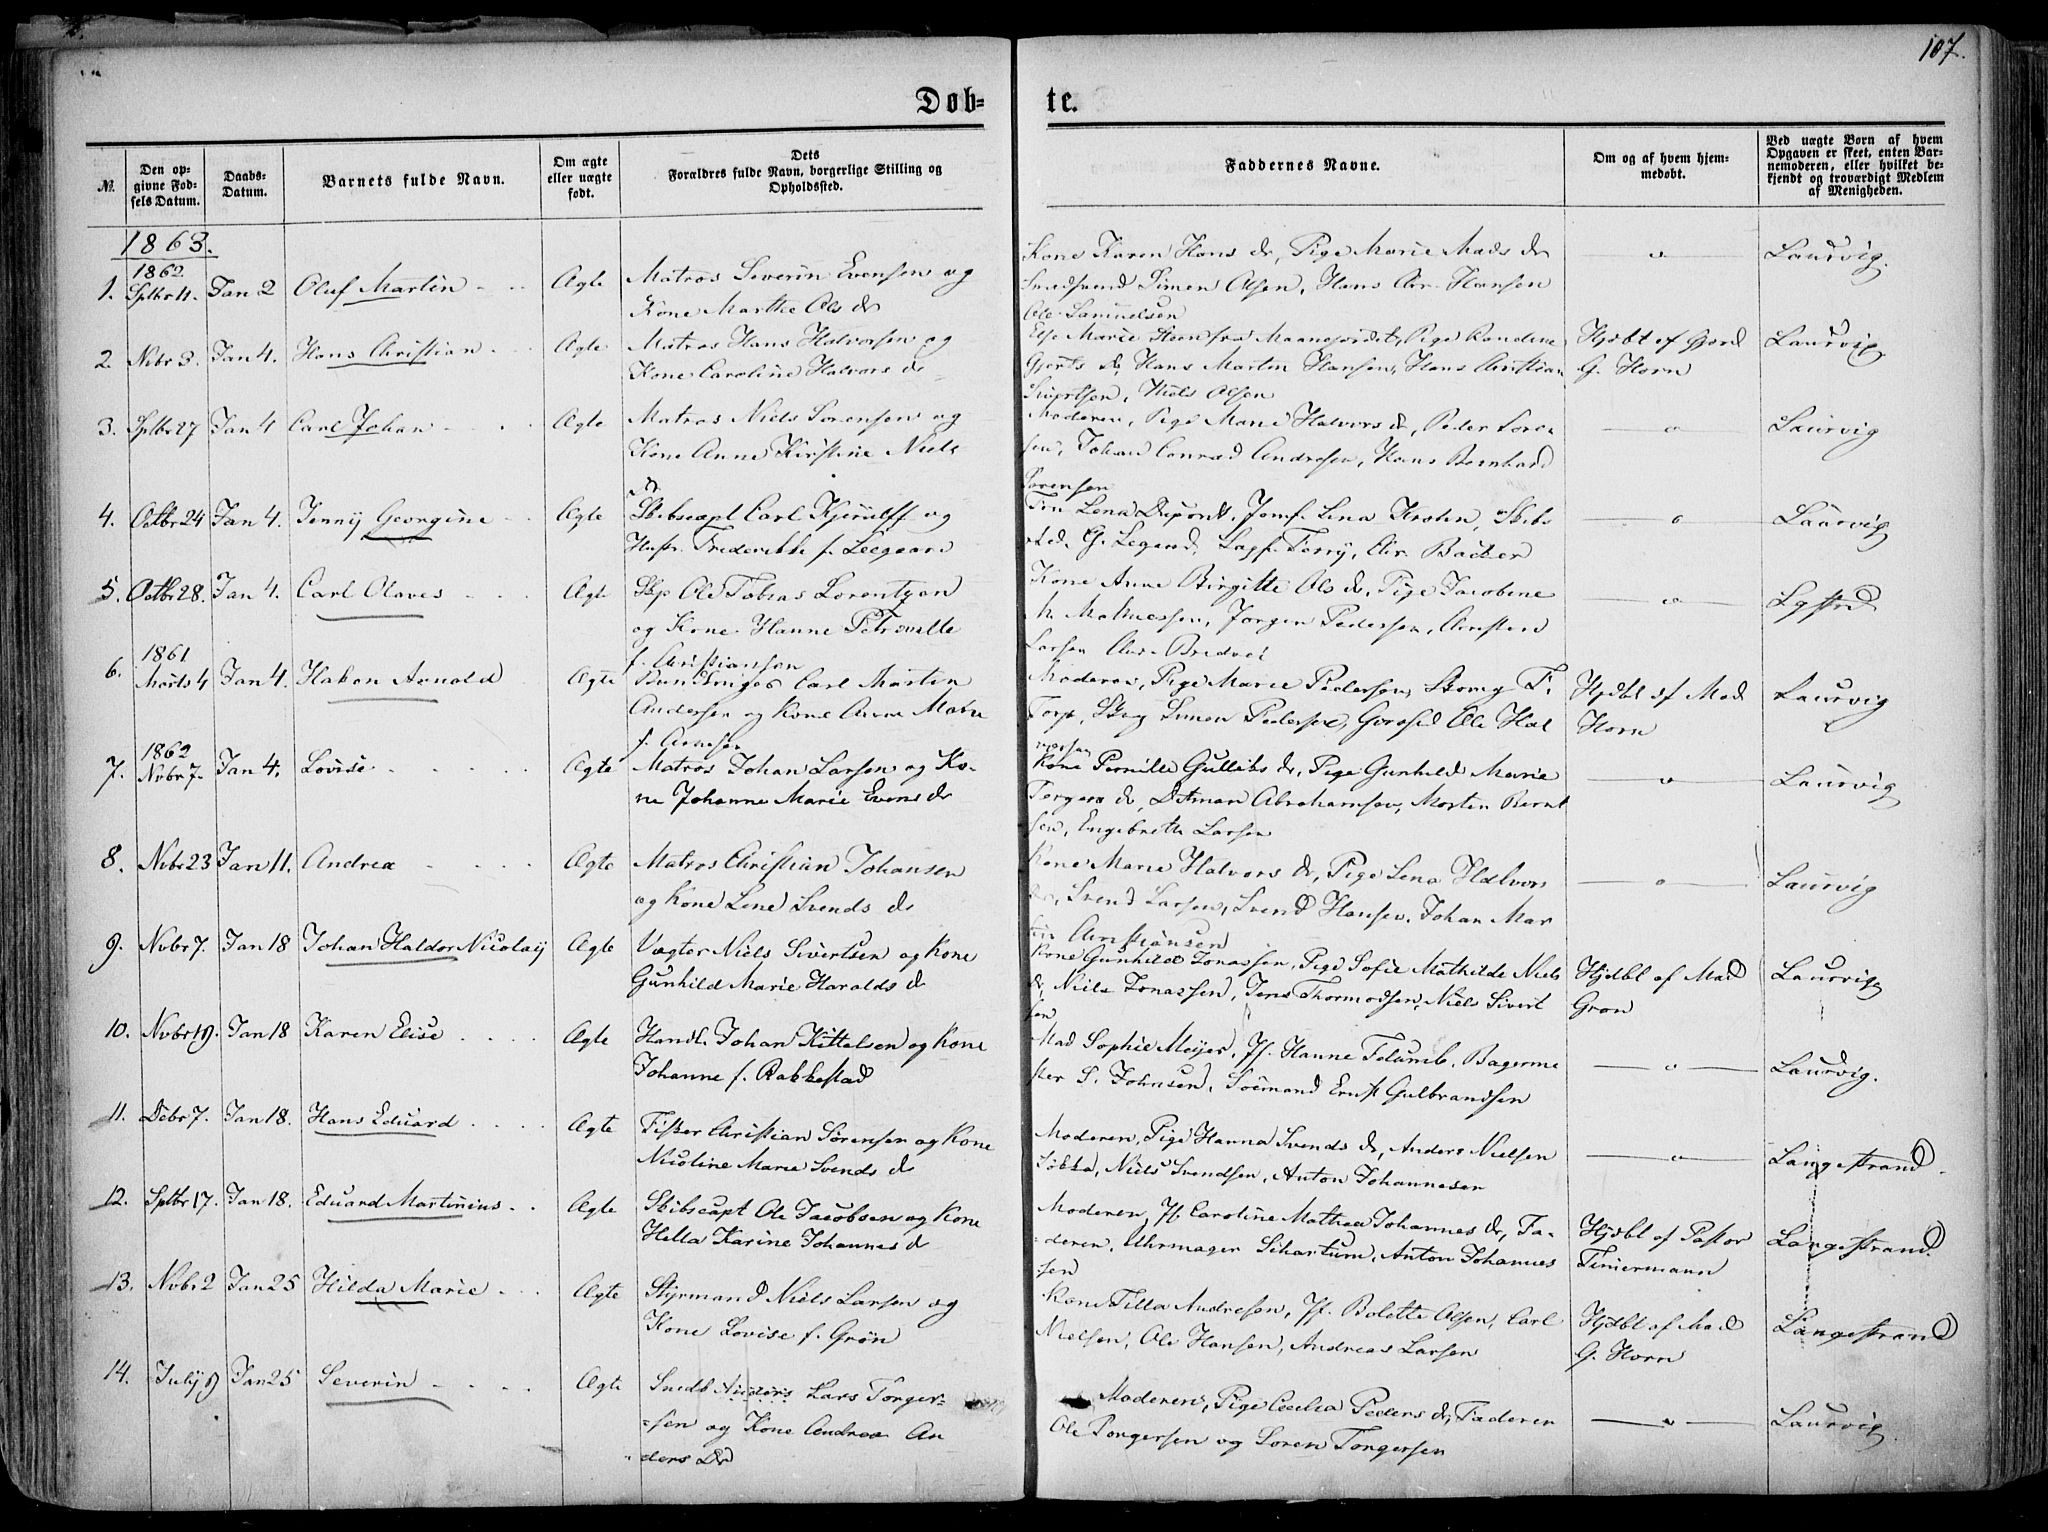 107.
Døb=
te.
№.
Den op-
givne Fød-
sels Datum.
Daabs-
Datum.
Barnets fulde Navn.
Om ægte
eller uægte
født.
Dets
Forældres fulde Navn, borgerlige Stilling og
Opholdssted.
Faddernes Navne.
Om og af hvem hjem-
medøbt.
Ved uægte Børn af hvem
Opgaven er skeet, enten Bar-
nemoderen, eller hvilket be-
kjendt og troværdigt Medlem
af Menigheden.
1863.
1862
1. Sptbr 4. Jan 2 Oluf Martin Ægte Matros Severin Evensen og
Kone Marthe Ols dr
Kone Karen Hans dr, Pige Marie Mads dr
Simen Olsen, Hans Chr. Hansen
Ole Samuelsen
Laurvig.
2. Nvbr 3. Jan 4. Hans Christian Ægte Matros Hans Halvorsen og
Kone Caroline Halvors dr
Else Marie Steen fra Pige Randine
Gjerts dr, Hans Martin Hansen, Hans Christian
Sivertsen, Niels Olsen
Hjdbt af Gjord
G. Horn
Laurvig
3. Sptbr 27 Jan 4 Carl Johan Ægte Matros Niels Sørensen og
Kone Anne Kirstine Niels
dr
Moderen, Pige Marie Halvors dr, Peder Søren
sen, Johan Conrad Andresen, Hans Bernhard
Sørensen
Laurvig
4. Octbr 24 Jan 4. Jenny Georgine Ægte Skibscapt Carl Kjerulff og
Hustr. Frederikke f. Leegaard
Fru Lena Dupont, Jomf. Lina Skibs
G. Legand, Chr. Backer
Laurvig
5. Octbr 28. Jan 4. Carl Olaves Ægte Skp Ole Tobias Lorentzen
og Kone Hanne Petronille
f. Christiansen
Kone Anne Birgitte Ols dr, Pige Jacobine
M. Mathiessen, Jørgen Pedersen, Christen
Larsen
Lgstrd
1861
6. Marts 4 Jan 4. Hakon Arnold Ægte Carl Martin
Andersen og Kone Anne
f. Arnesen
Moderen, Pige Marie Pedersen, T.
Torp, Simen Pedersen, Ole Hal
vorsen
Hjdbt af Mad
Horn
Laurvig
1862
7. Nvbr 7. Jan 4. Lovise Ægte Matros Johan Larsen og Ko-
ne Johanne Marie Evens dr
Kone Pernille Gulliks dr, Pige Gunhild Marie
Torgers dr, Ditman Abrahamsen, Morten Bernt
sen, Engebrett Larsen
Laurvig
8. Nvbr 23 Jan 11. Andrea Ægte Matros Christian Johansen
og Kone Lene Svends dr
Kone Marie Halvors dr, Pige Lena Halvors
dr, Svend Larsen, Svend Hansen, Johan Mar
tin Christiansen
Laurvig
9. Nvbr 7. Jan 18 Johan Haldor Nicolay Ægte Vægter Niels Sivertsen og Kone
Gunhild Marie Haralds dr
Kone Gunhild Jonassen, Pige Sofie Mathilde Niels
dr, Niels Jonassen, Jens Thormodsen, Niels Sivert
sen
Hjdbt af Mad
Grøn
Laurvig
10. Nvbr 19. Jan 18 Karen Elise Ægte Handl. Johan Kittelsen og Kone
Johanne f. Rakkestad
Mad Sophie Meijer, Jf. Hanne Bagerme
ster S. Johnsen, Søemand Ernst Gulbrandsen
Laurvig.
11. Debr 7. Jan 18. Hans Eduard Ægte Fisker Christian Sørensen og Kone
Nicoline Marie Svends dr
Moderen, Pige Hanna Svends dr, Anders Nielsen
Løkka, Niels Svendsen, Anton Johannesen
Langestrand.
12. Sptbr 17. Jan 18. Eduard Martinius Ægte Skibscapt Ole Jacobsen og Kone
Hella Karine Johannes dr
Moderen, Jf. Caroline Mathea Johannes dr, Fa-
deren, Uhrmager Schartum, Anton Johannes
sen
Hjdbt af Pastor
Timermann
Langestrand.
13. Nvbr 2 Jan 25 Hilda Marie Ægte Styrmand Niels Larsen og
Kone Lovise f. Grøn
Kone Tilla Andresen, Jf. Bolette Olsen, Carl
Nielsen, Ole Hansen, Andreas Larsen
Hjdbt af Mad
G. Horn
Langestrand
14. July 19 Jan 25 Severin Ægte Smedk Anders Lars Torger-
sen og Kone Andrea An
ders dr
Moderen, Pige Cecilia Peders dr, Faderen
Ole Torgersen og Søren Torgersen
Laurvig.